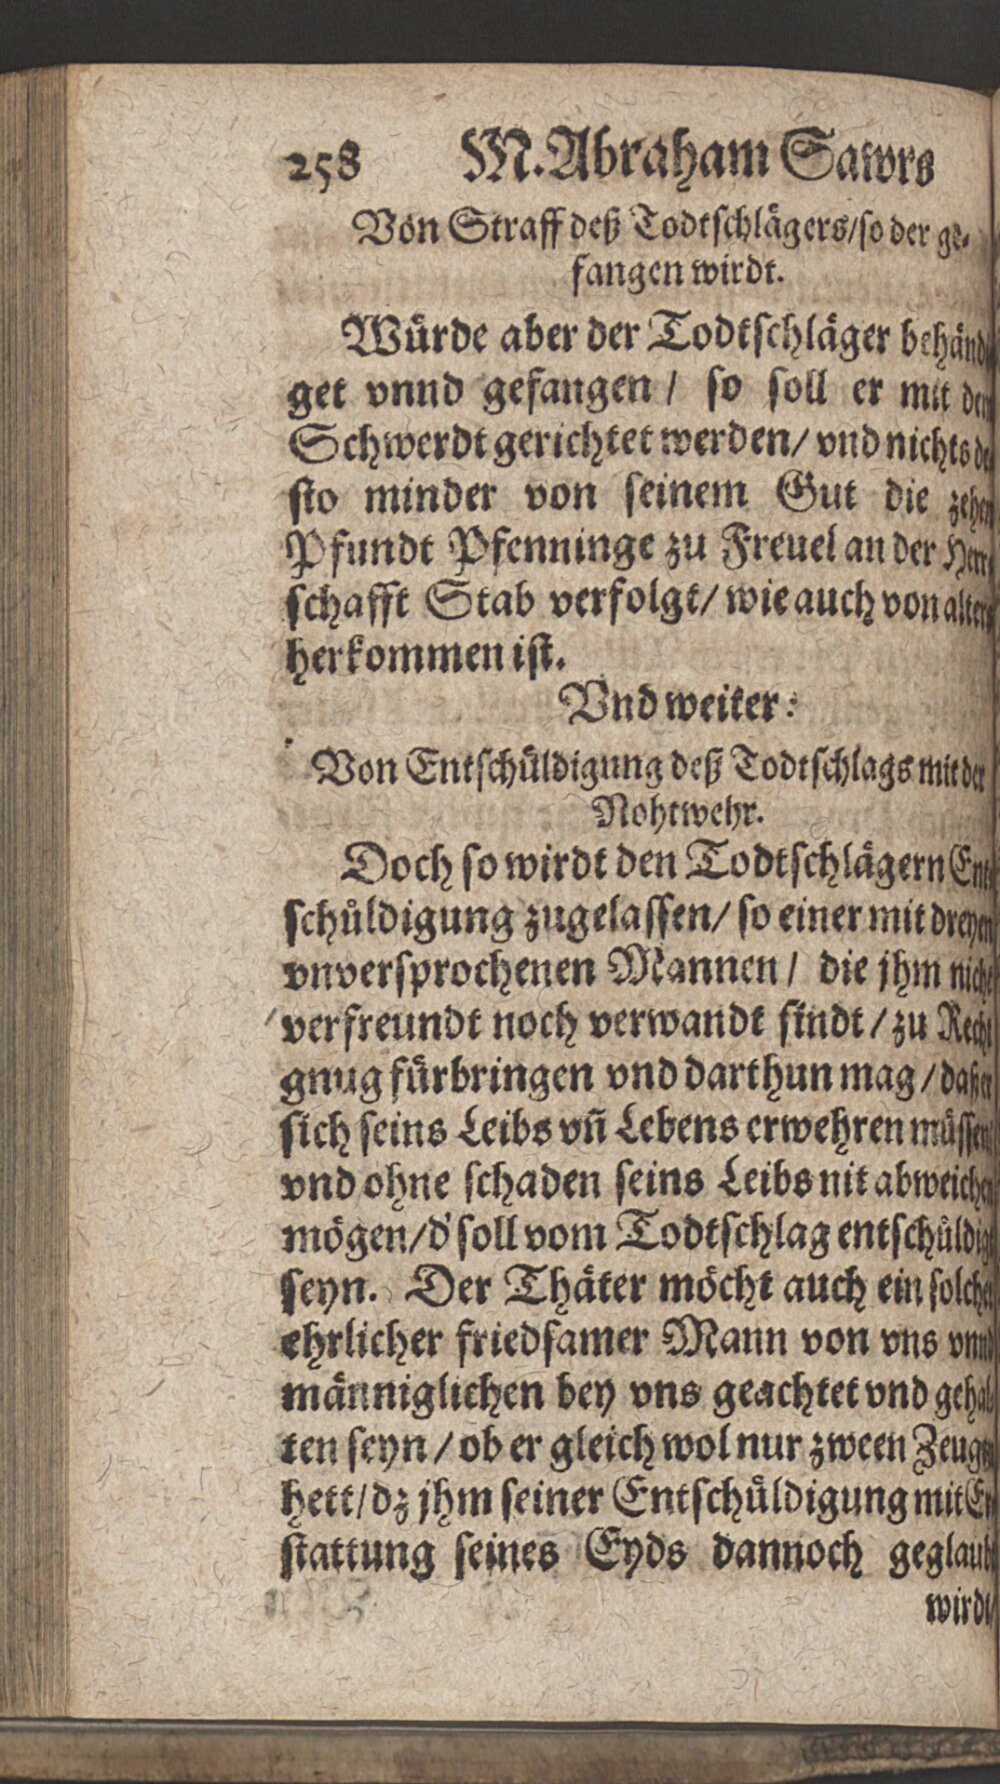 258 M. Abraham Sawrs
Von Straff deß Todtschlägers/so der ge-
fangen wirdt.
Würde aber der Todtschläger behändi
get vnnd gefangen / so soll er mit dem
Schwerdt gerichtet werden/ vnd nichts de
sto minder von seinem Gut die zehen
Pfundt Pfenninge zu Freuel an der Herr-
schafft Stab verfolgt/ wie auch von alters
herkommen ist.
Vnd weiter:
Von Entschüldigung deß Todtschlags mit der
Nohtwehr.
Doch so wirdt den Todtschlägern Ent
schüldigung zugelassen/ so einer mit dreyen
vnversprochenen Mannen / die jhm nicht
verfreundt noch verwandt sindt / zu Recht
gnug fürbringen vnd darthun mag / daß er
sich seins Leibs vñ Lebens erwehren müssen
vnd ohne schaden seins Leibs nit abweichen
mögen/d' soll vom Todtschlag entschüldigt
seyn. Der Thäter möcht auch ein solcher
ehrlicher friedsamer Mann von vns vnnd
männiglichen bey vns geachtet vnd gehal
ten seyn / ob er gleich wol nur zween Zeugen
hett/ dz jhm seiner Entschüldigung mit Er
stattung seines Eyds dannoch geglaubt
wirdt/